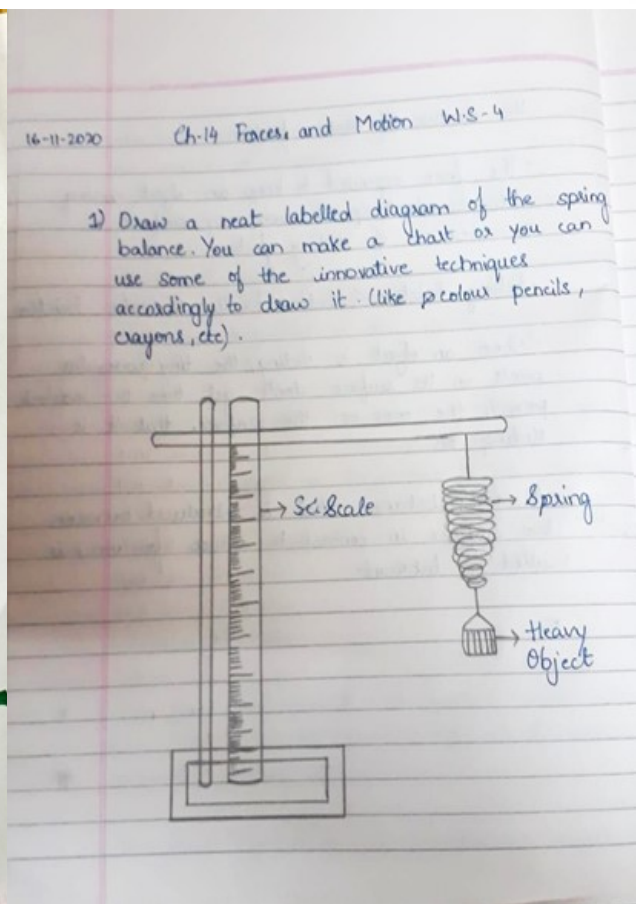 16-11-2020
Ch-14 Forces, and Motion W.S-4
1) Draw a neat labelled diagram of the spring
balance. You can make a chart or you can
use some of the innovative techniques
accordingly to draw it. (like colour pencils,
crayons, etc).
Scale
Spring
Heavy
Object